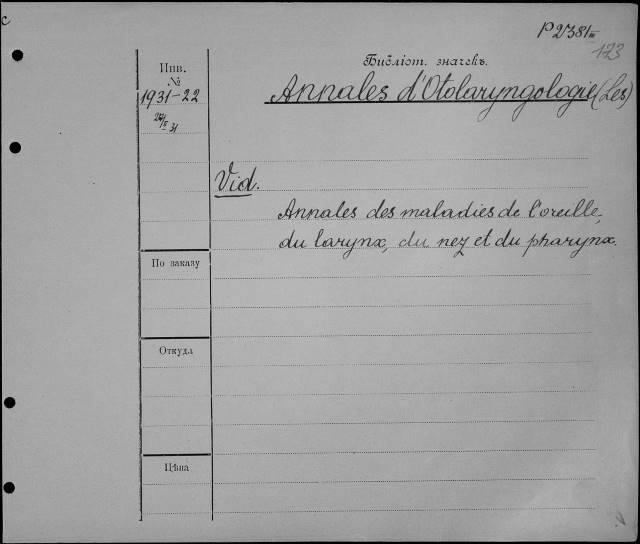 с
P 27381 III
173
Библіот. значекъ.
Инв.
№
1931-22
Annales d'Otolaryngologie (Les)
Vid.
Annales des maladies de l'oreille,
du larynx, du nez et du pharynx.
По заказу
Откуда
Цѣна